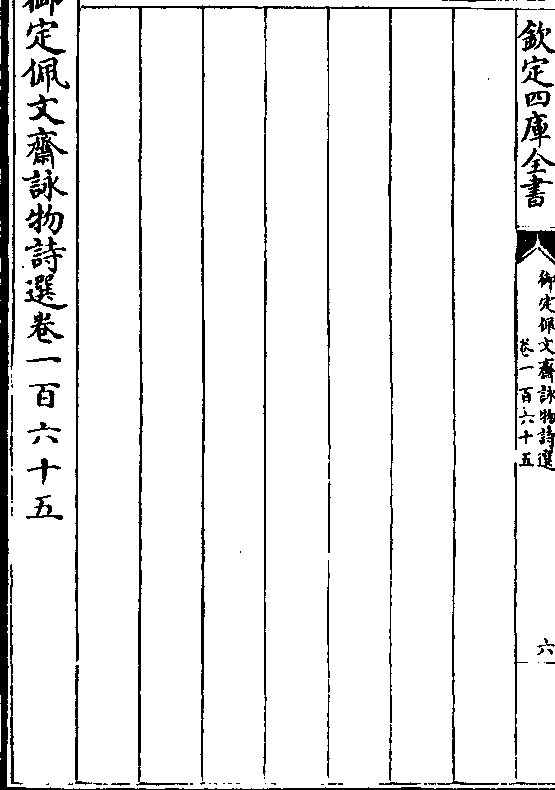 欽定四庫全書
御定佩文齋詠物詩選
卷一百六十五
六
御定佩文齋詠物詩選卷一百六十五